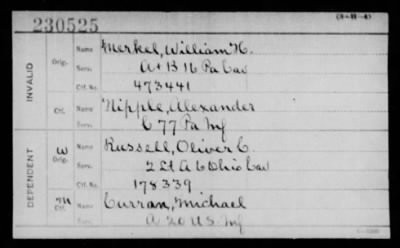 230525
(3-111-4)
INVALID
Orig.
Name Merkel, William H.
Serv. A + B 16 Pa Cav
Ctf. No. 473441
Ctf.
Name Nipple, Alexander
Serv. C 77 Pa Inf
DEPENDENT
W
Orig.
Name Russell, Oliver C.
Serv. 2 Lt A 6 Ohio Cav
Ctf. No. 178339
M
Ctf.
Name Curran, Michael
Serv. A 20 U.S. Inf